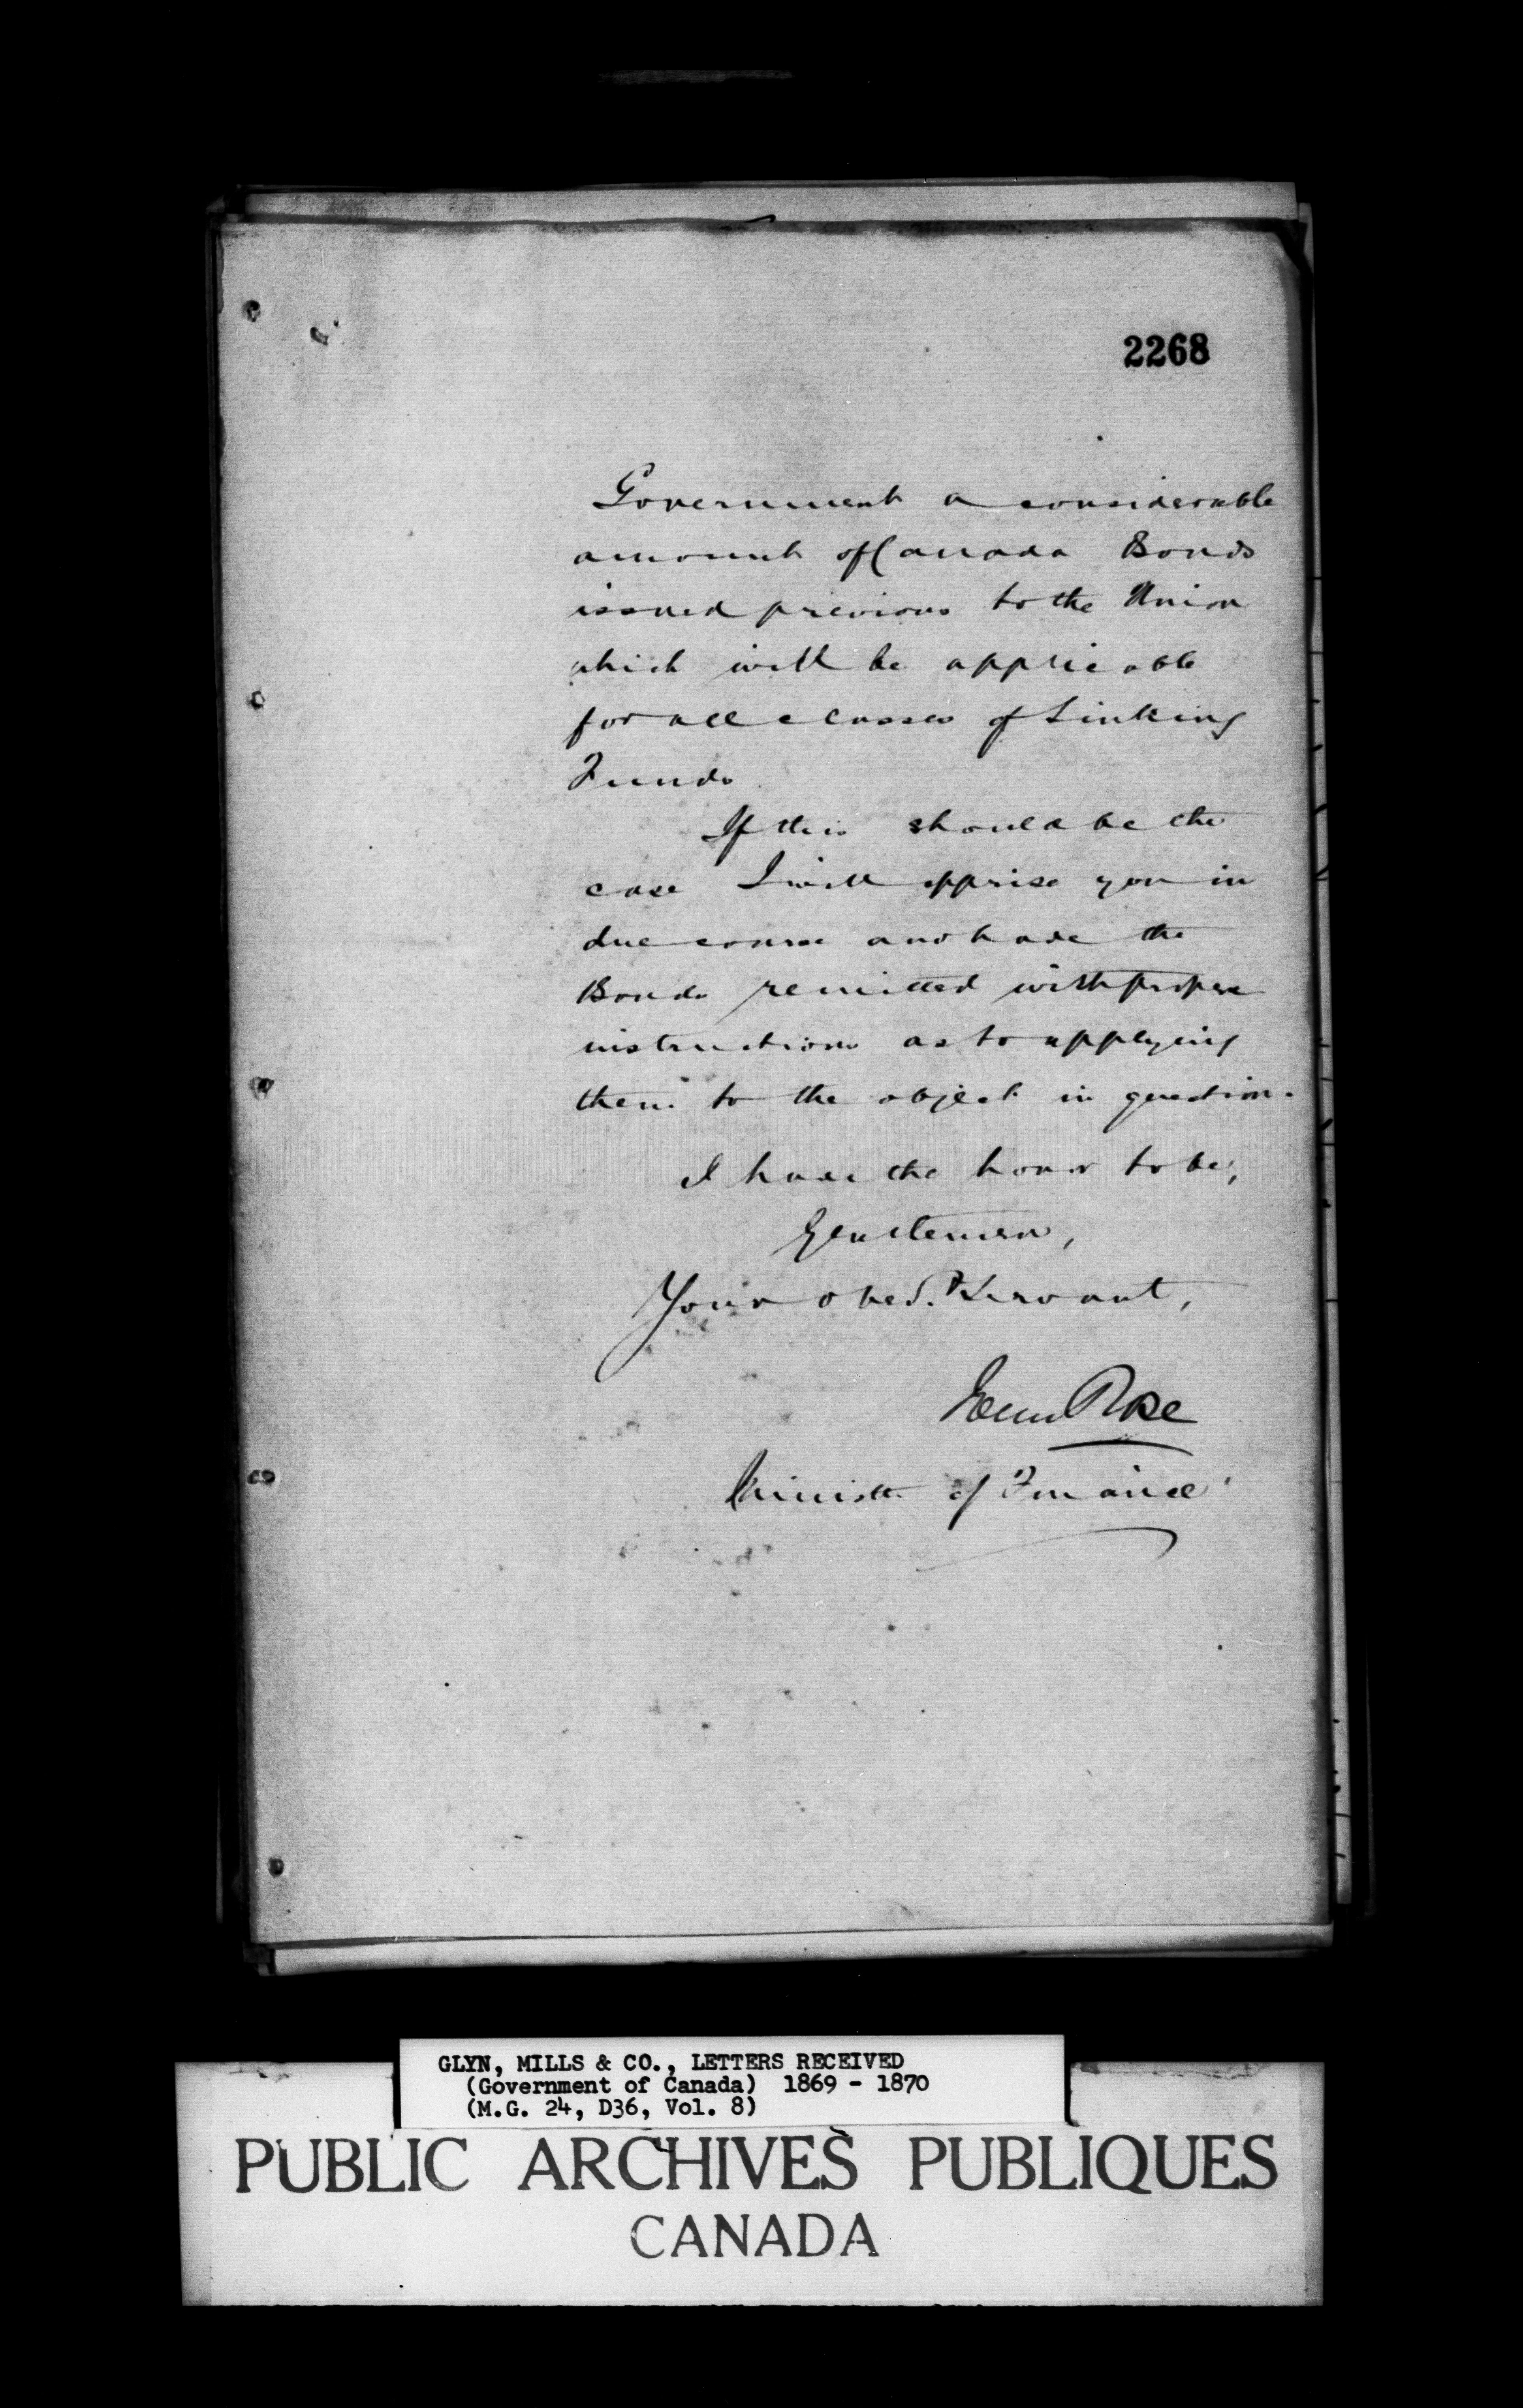 2268
Government a considerable
amount of Canada Bonds
issued previous to the Union
which will be applicable
for all classes of Sinking
Funds
If this should be the
case I will apprise you in
due course and have the
Bonds remitted with proper
instructions as to applying
them to the object in question.
I have the honor to be,
Gentlemen,
Your obed.t Servant,
John Rose
Minister of Finance
GLYN, MILLS & CO., LETTERS RECEIVED
(Government of Canada) 1869 - 1870
(M.G. 24, D36, Vol. 8)
PUBLIC ARCHIVES PUBLIQUES
CANADA